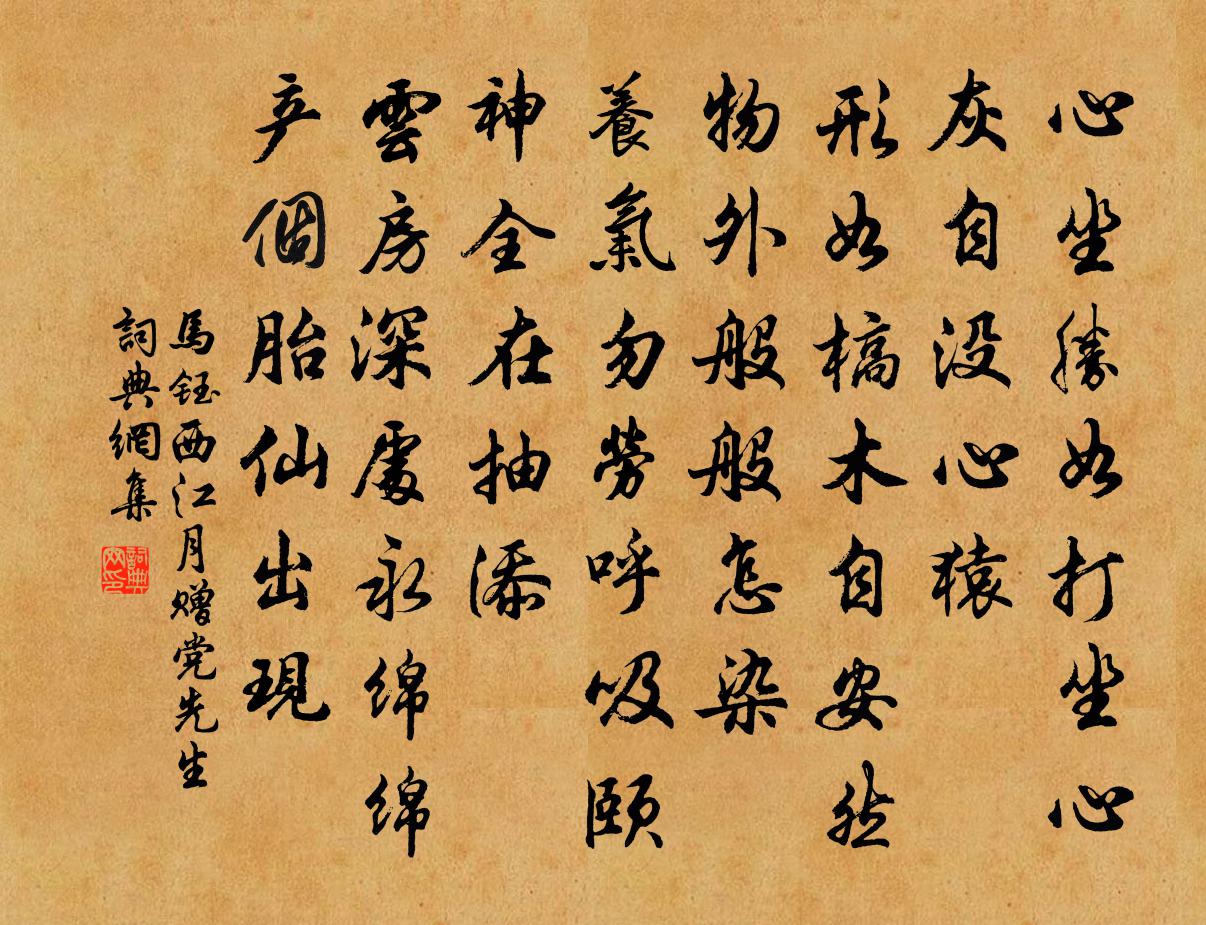 心坐勝如打坐心
灰自没心猿
形如槁木自安然
物外般般怎染
養氣勿勞呼吸頤
神全在抽添
雲房深處永綿綿
产個胎仙出現
馬鈺西江月赠党先生
詞典網集
詞典
网印